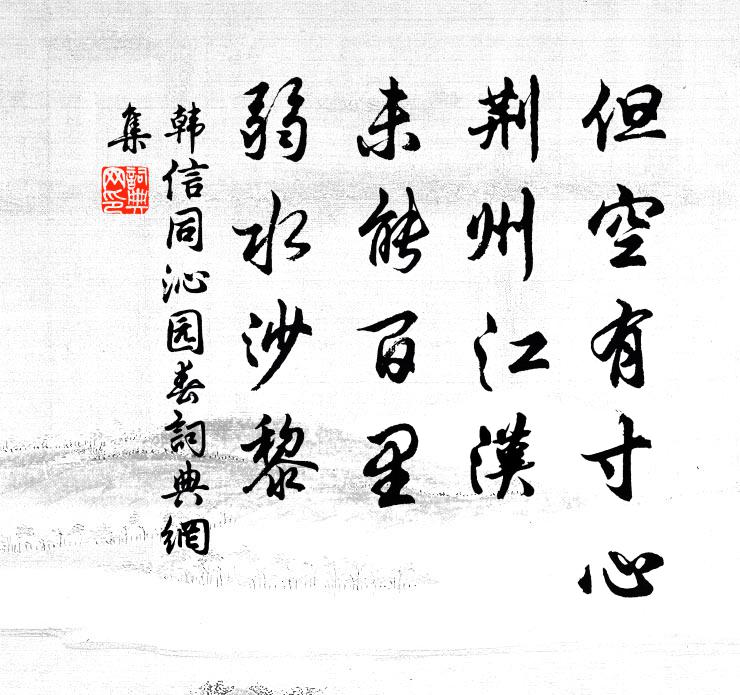 但空有寸心
荆州江漢
未能百里
弱水沙黎
韩信同沁园春詞典網
集
詞典
网印